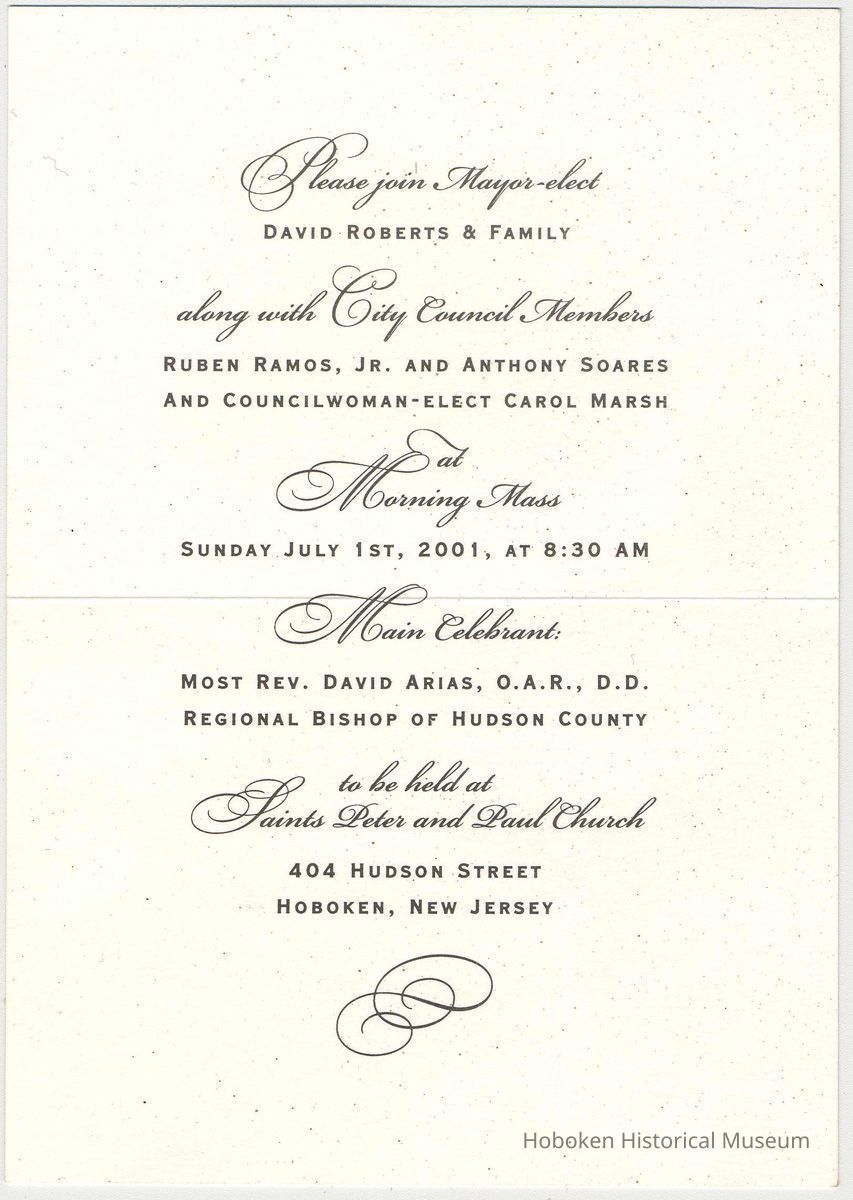 Please join Mayor-elect
David Roberts & Family
along with City Council Members
Ruben Ramos, Jr. and Anthony Soares
And Councilwoman-elect Carol Marsh
at
Morning Mass
Sunday July 1st, 2001, at 8:30 AM
Main Celebrant:
Most Rev. David Arias, O.A.R., D.D.
Regional Bishop of Hudson County
to be held at
Saints Peter and Paul Church
404 Hudson Street
Hoboken, New Jersey
Hoboken Historical Museum